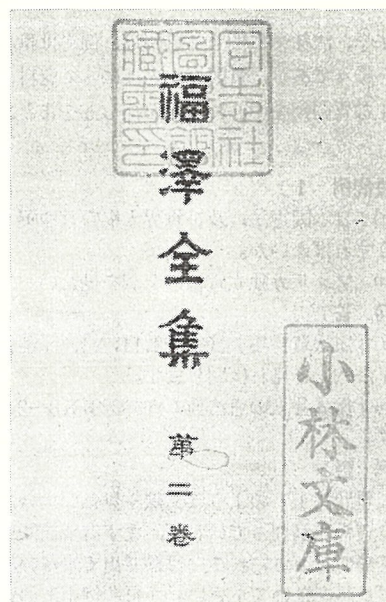 同志社
圖書館
藏書印
福澤全集
第二卷
小林文庫